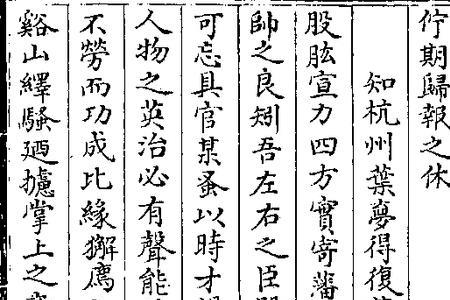 佇期歸報之休
知杭州葉夢得復
股肱宣力四方實寄藩
帥之良矧吾左右之臣
可忘具官某蚤以時才
人物之英治必有聲能
不勞而功成比緣獬廌
谿山繹騷廼攄掌上之